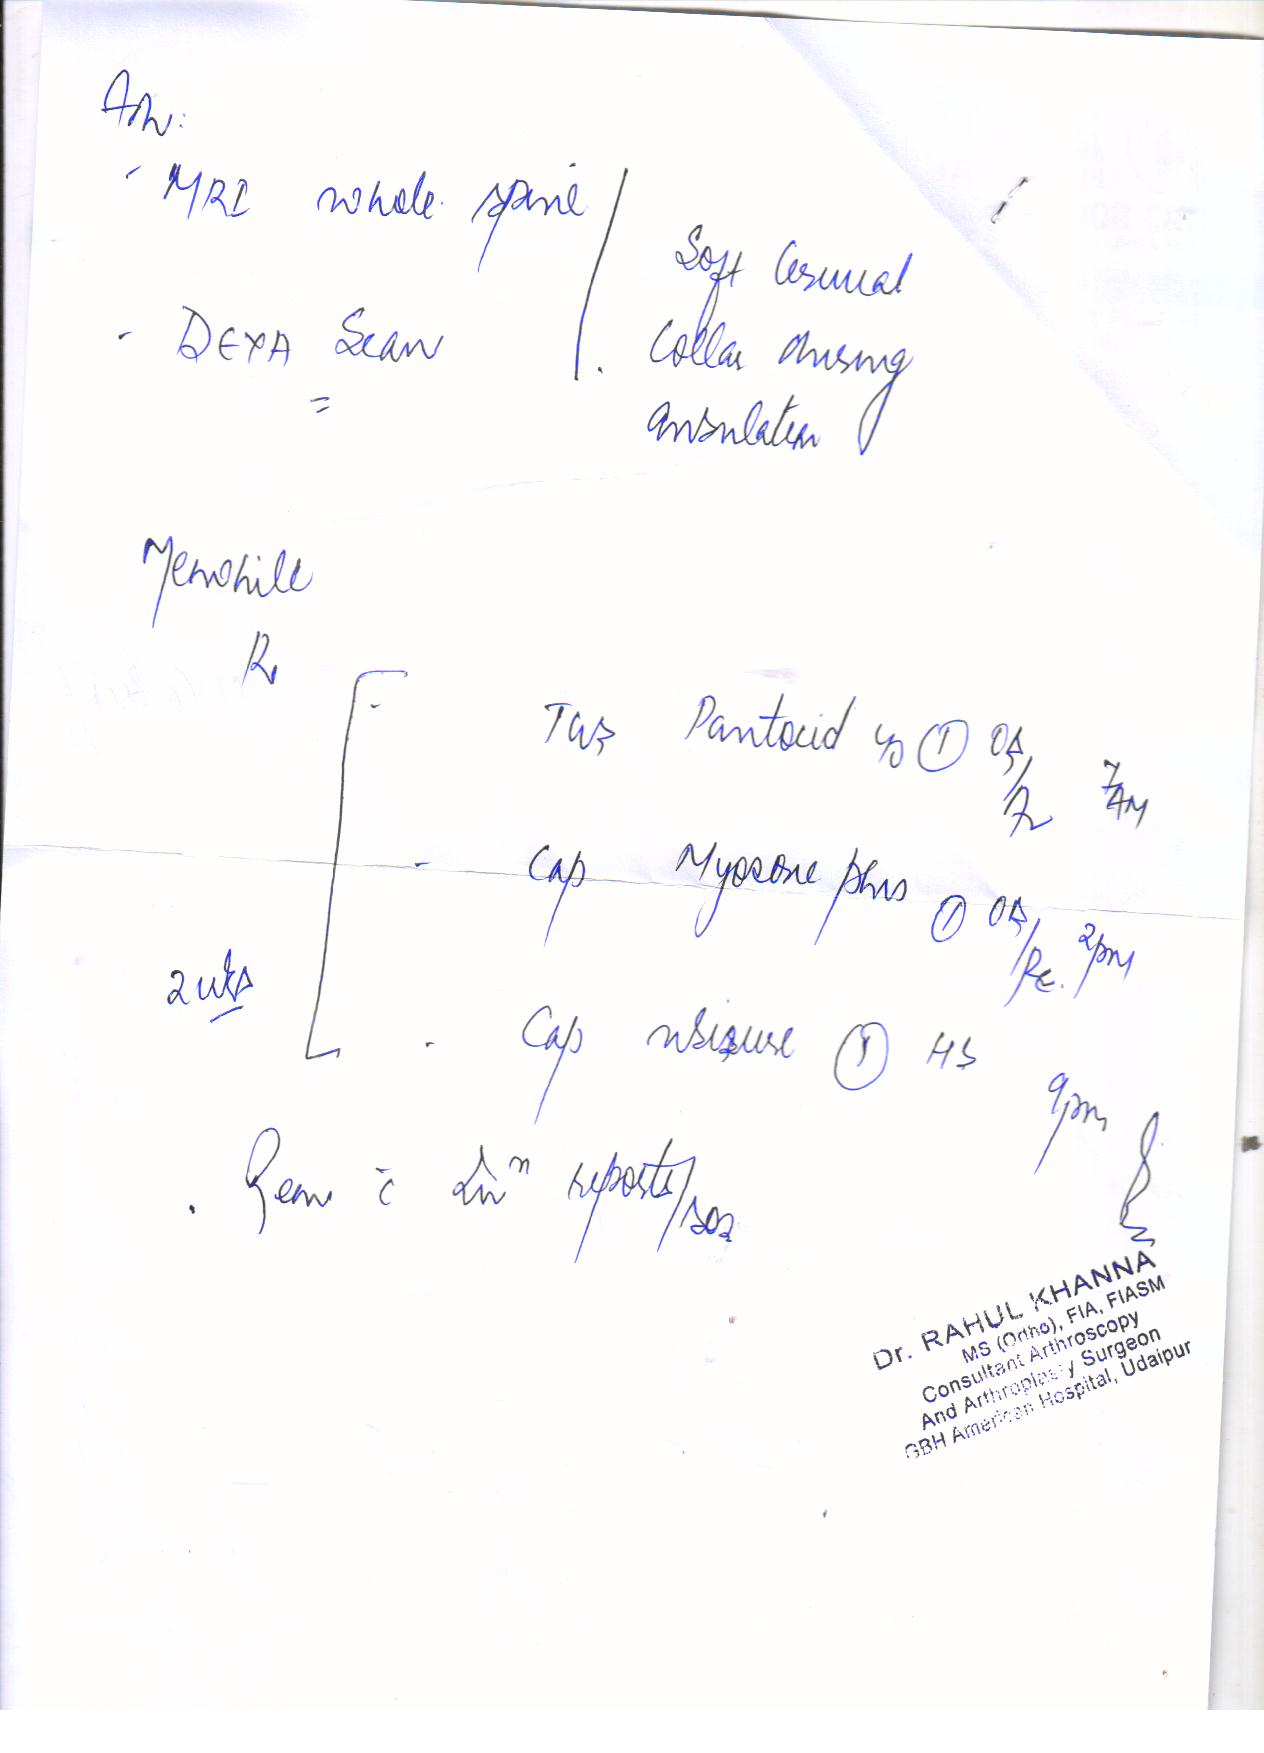 Adv:
- MRI whole spine
- DEXA Scan
Soft Cervical
. Collar during
ambulation
Menwhile
Rx
- Tab Pantocid 40 ① OD/ 7AM
- Cap Myosone plus ① OD/PC. 2pm
2 wks
- Cap ① HS 9pm
. Rev c̄ Invn reports/SOS
Dr. RAHUL KHANNA
MS (Ortho), FIA, FIASM
Consultant Arthroscopy
And Arthroplasty Surgeon
GBH American Hospital, Udaipur